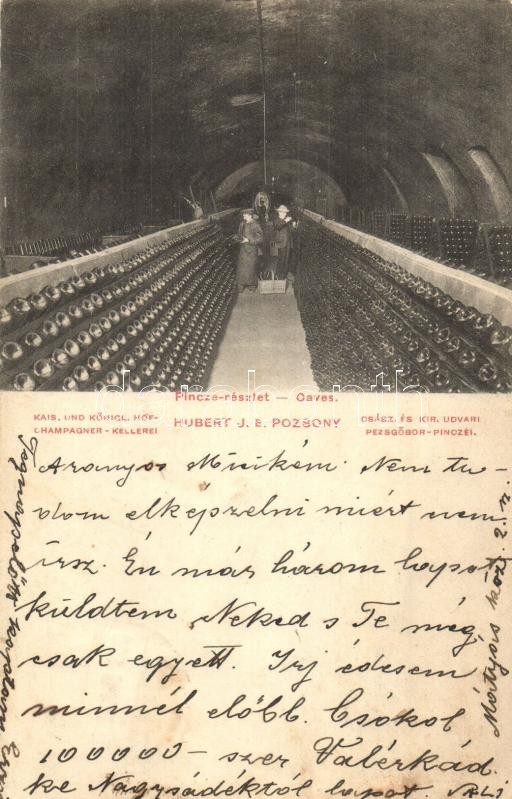 Pincze-részlet — Caves.
KAIS. UND KÖNIGL. HOF-
CHAMPAGNER - KELLEREI
HUBERT J. E. POZSONY
CSÁSZ. ÉS KIR. UDVARI
PEZSGŐBOR-PINCZÉI.
Aranyos Miczikém. Nem tu-
dom elképzelni miért nem
irsz. Én már három lapot
küldtem Neked s Te még
csak egyett. Irj édesem
minnél előbb. Csókol
100000 - szer Valérkád.
ke Nagysádéktól lapot.
Tegnapelőtt kaptam
Mártyás
darabanth.com